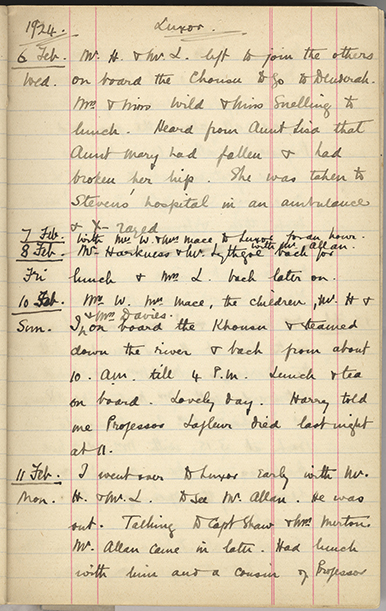 1924. Luxor.
6 Feb. Mr. H. & Mr. L. left to join the others
Wed. on board the Chonsu to go to Denderah.
Mrs & Miss Wild & Miss Snelling to
lunch. Heard from Aunt Lisa that
Aunt Mary had fallen & had
broken her hip. She was taken to
Stevens' hospital in an ambulance
& X-rayed
7 Feb. With Mrs. W. & Mrs Mace to Luxor for an hour.
with Mr. Allan.
8 Feb. Mr. Harkness & Mr. Lythgoe back for
Fri lunch & Mrs L. back later on.
10 Feb. Mrs. W. Mrs. Mace, the children, Mr. H &
& Mrs Davies.
Sun. I, on board the Khonsu & steamed
down the river & back from about
10. A.m. till 4 P.M. Lunch & tea
on board. Lovely day. Harry told
me Professor Lafleur died last night
at 11.
11 Feb. I went over to Luxor early with Mr.
Mon. H. & Mr. L. to see Mr. Allan. He was
out. Talking to Capt Shaw & Mrs. Merton
Mr. Allan came in later. Had lunch
with him and a cousin of Professor